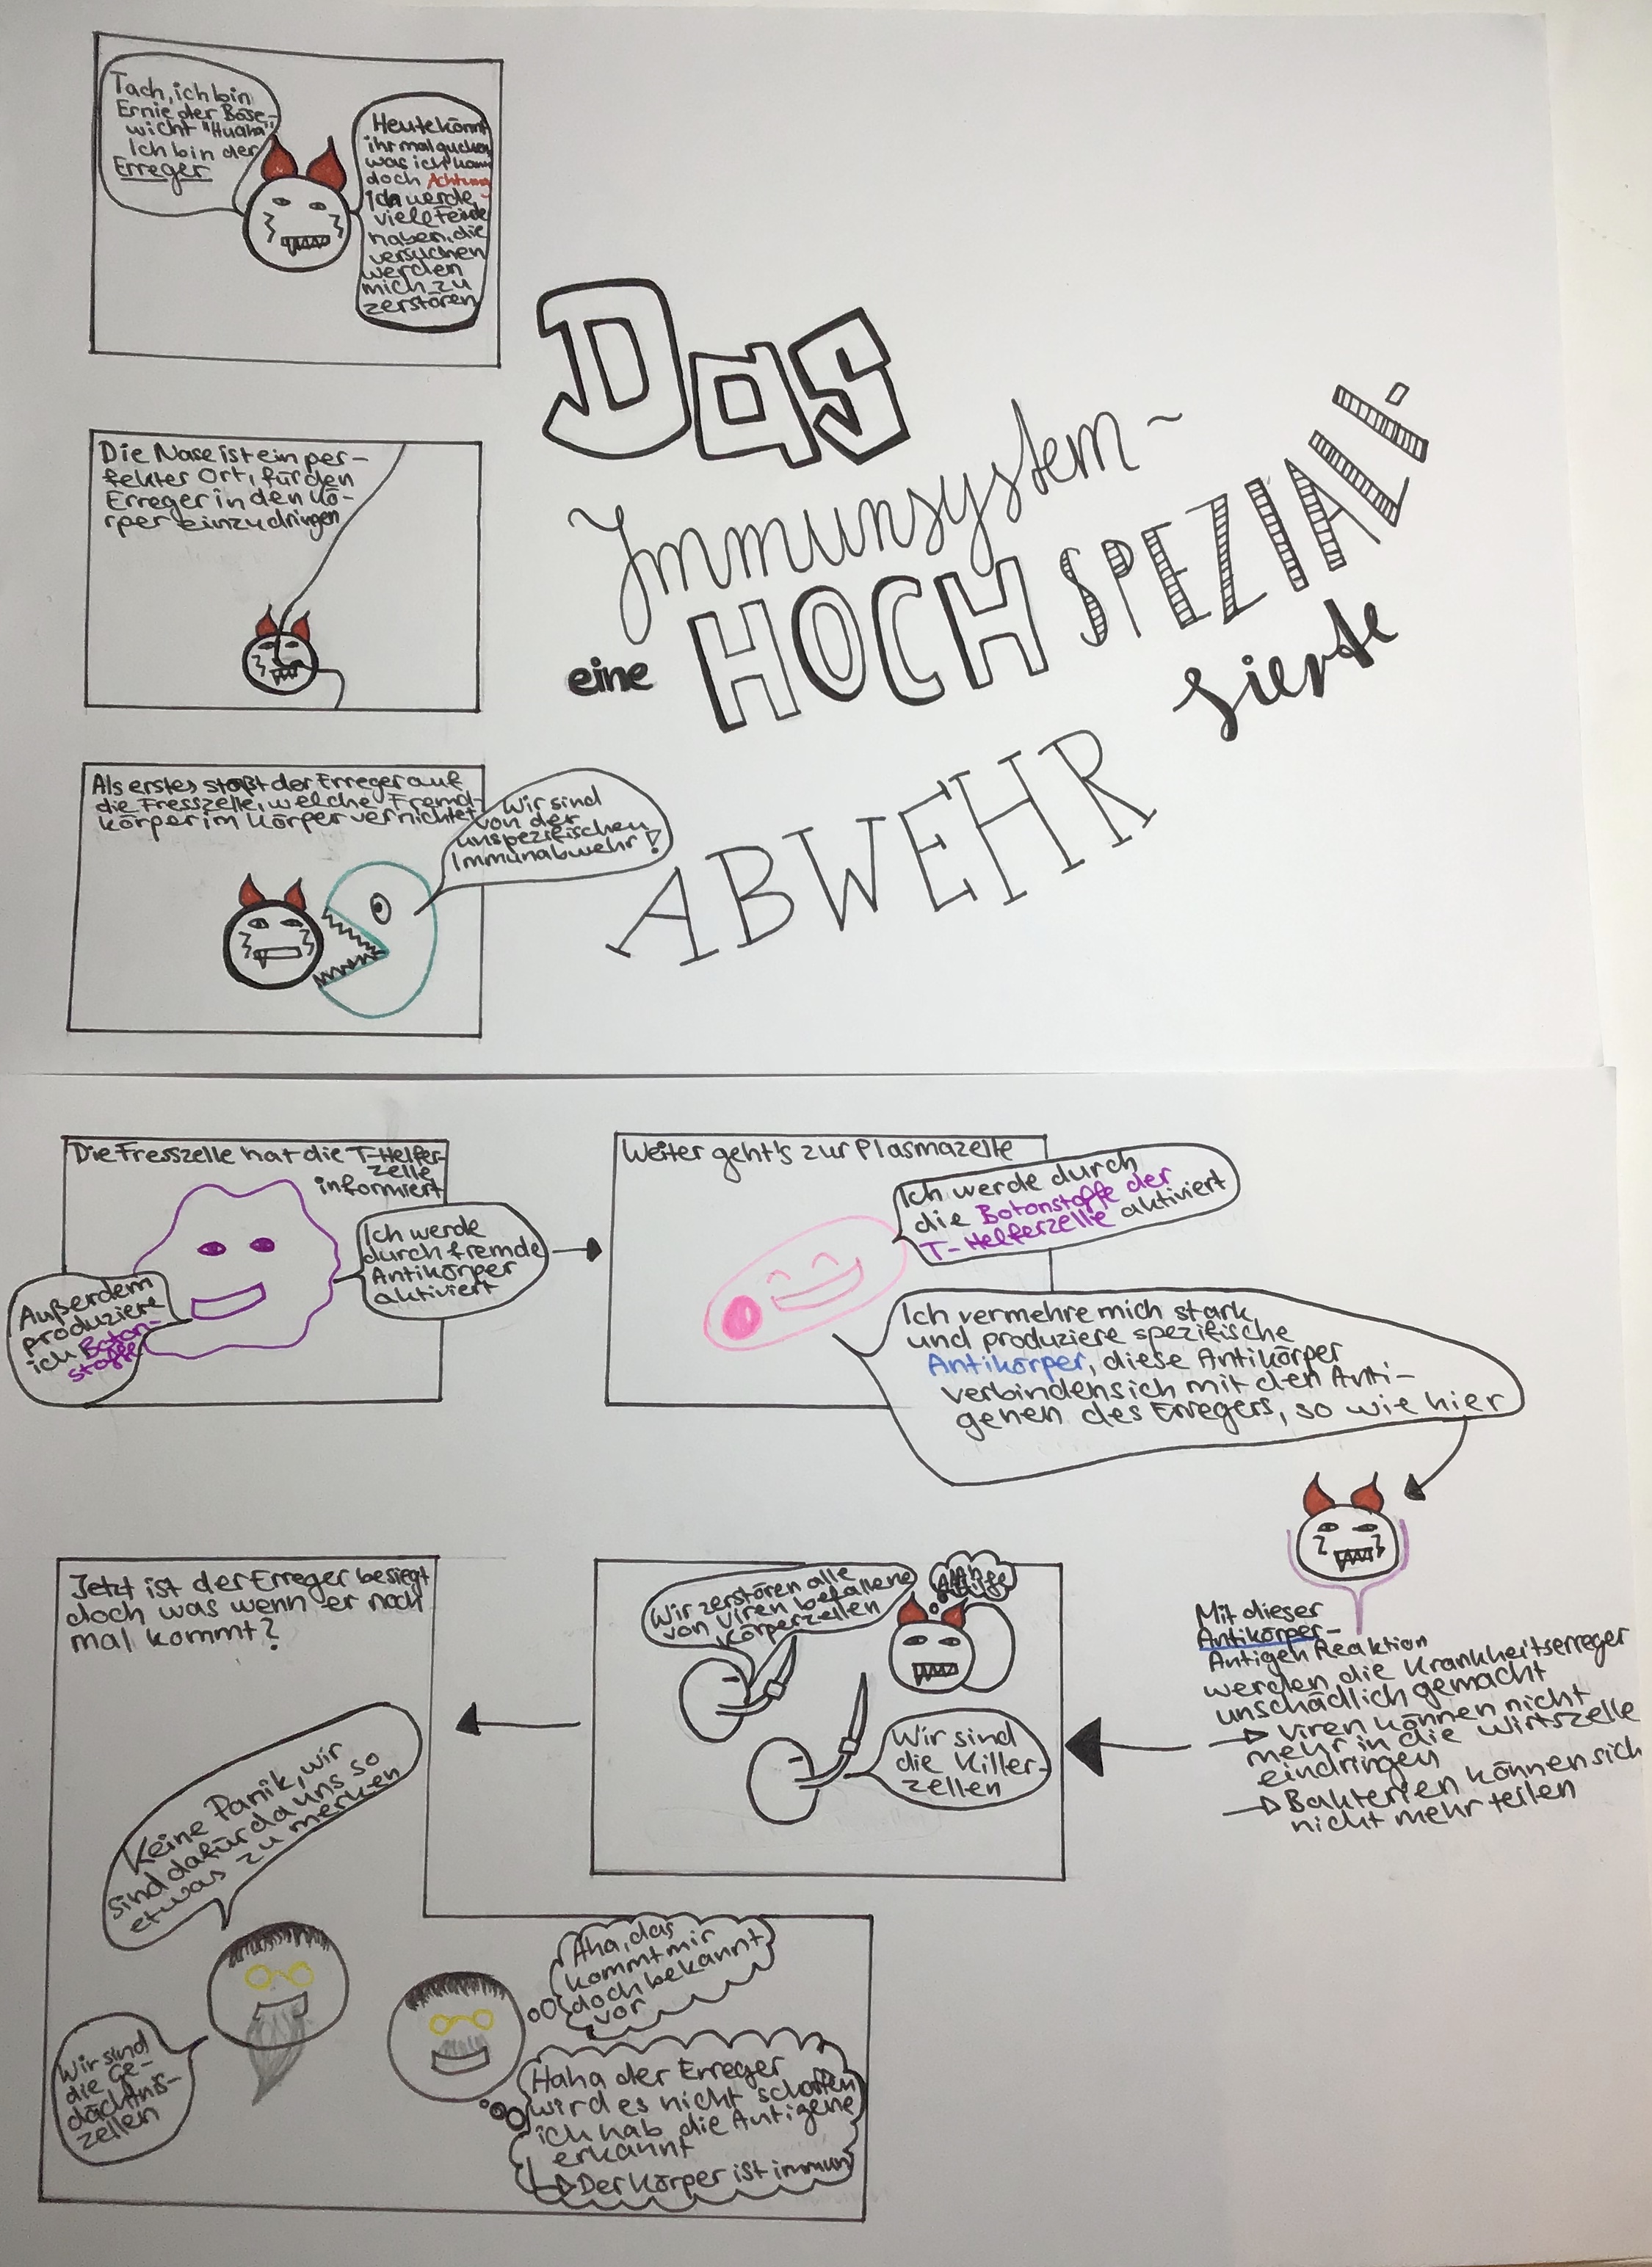 Tach, ich bin
Ernie der Böse-
wicht "Huaha"
Ich bin der
Erreger
Heute könnt
ihr mal gucken
was ich kann
doch Achtung
ich werde
viele Feinde
haben, die
versuchen
werden
mich zu
zerstören
Das
Immunsystem~
eine HOCH SPEZIALI-
sierte
ABWEHR
Die Nase ist ein per-
fekter Ort, für den
Erreger in den Kö-
rper einzudringen
Als erstes stoßt der Erreger auf
die Fresszelle, welche Fremd-
körper im Körper vernichtet
Wir sind
von der
unspezifischen
Immunabwehr!
Die Fresszelle hat die T-Helfer-
zelle
informiert
Ich werde
durch fremde
Antikörper
aktiviert
Außerdem
produziere
ich Boton-
stoffe
Weiter geht's zur Plasmazelle
Ich werde durch
die Botonstoffe der
T-Helferzellie aktiviert
Ich vermehre mich stark
und produziere spezifische
Antikörper, diese Antikörper
verbinden sich mit den Anti-
genen des Erregers, so wie hier
Mit dieser
Antikörper-
Antigen Reaktion
werden die Krankheitserreger
unschädlich gemacht
→ Viren können nicht
mehr in die Wirtszelle
eindringen
→ Bakterien können sich
nicht mehr teilen
Wir zerstören alle
von Viren befallene
Körperzellen
Wir sind
die Killer-
zellen
Jetzt ist der Erreger besiegt
doch was wenn er noch
mal kommt?
Keine Panik, wir
sind dafür da uns so
etwas zu merken
Wir sind
die Ge-
dächtnis-
zellen
Aha, das
kommt mir
doch bekannt
vor
Haha der Erreger
wird es nicht schaffen
ich hab die Antigene
erkannt
→ Der Körper ist immun